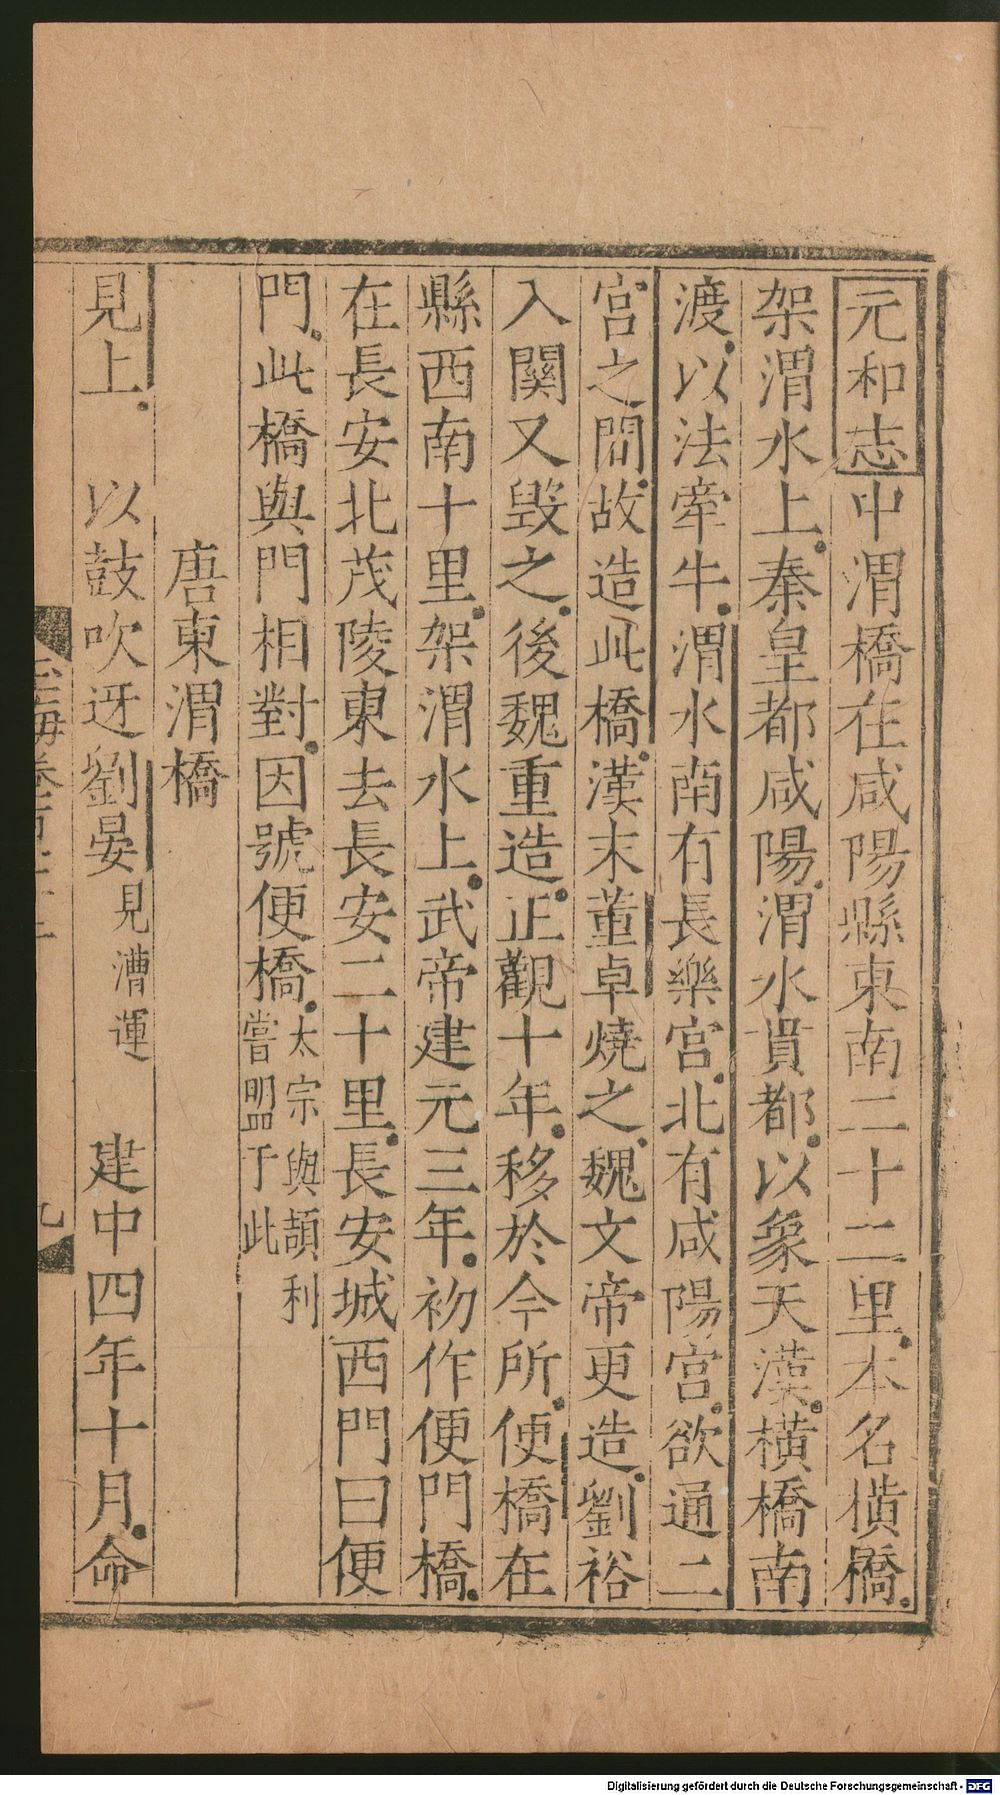 元和志中渭橋在咸陽縣東南二十二里本名橫橋
架渭水上秦皇都咸陽渭水貫都以象天漢橫橋南
渡以法牽牛渭水南有長樂宮北有咸陽宮欲通二
宮之間故造此橋漢末董卓燒之魏文帝更造劉裕
入關又毀之後魏重造正觀十年移於今所便橋在
縣西南十里架渭水上武帝建元三年初作便門橋
在長安北茂陵東去長安二十里長安城西門曰便
門此橋與門相對因號便橋太宗與頡利嘗盟于此
唐東渭橋
見上 以鼓吹迓劉晏見漕運 建中四年十月命
九
Digitalisierung gefördert durch die Deutsche Forschungsgemeinschaft - DFG